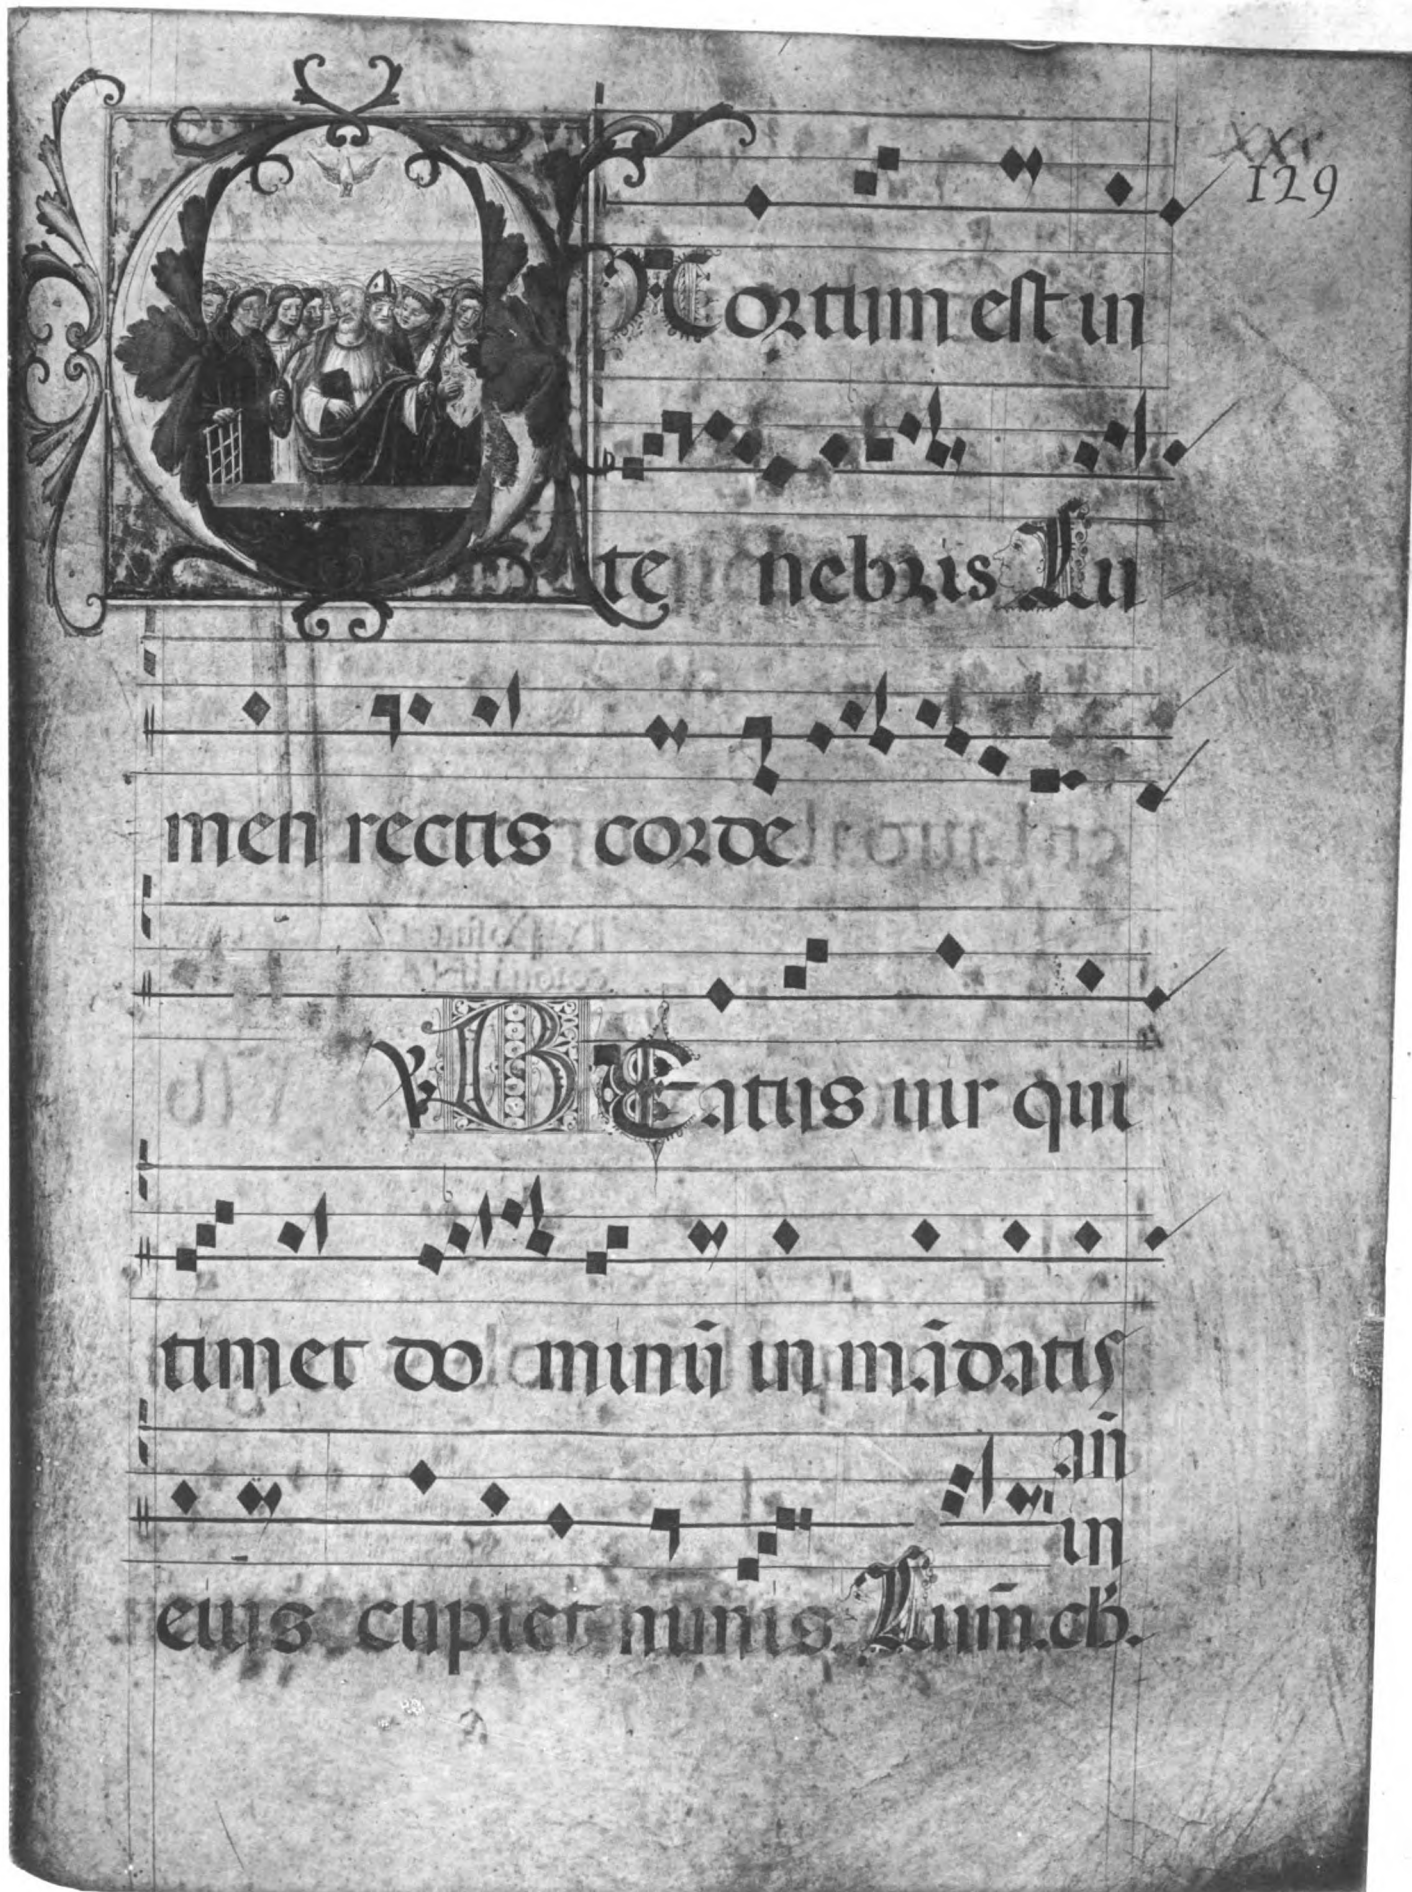 xxi
129
EXortum est in
te nebris Lu
men rectis corde
℣ BEatus uir qui
timet do minū in mādatis
eius cupiet nimis. Lum̄. cb̄.
añ
in